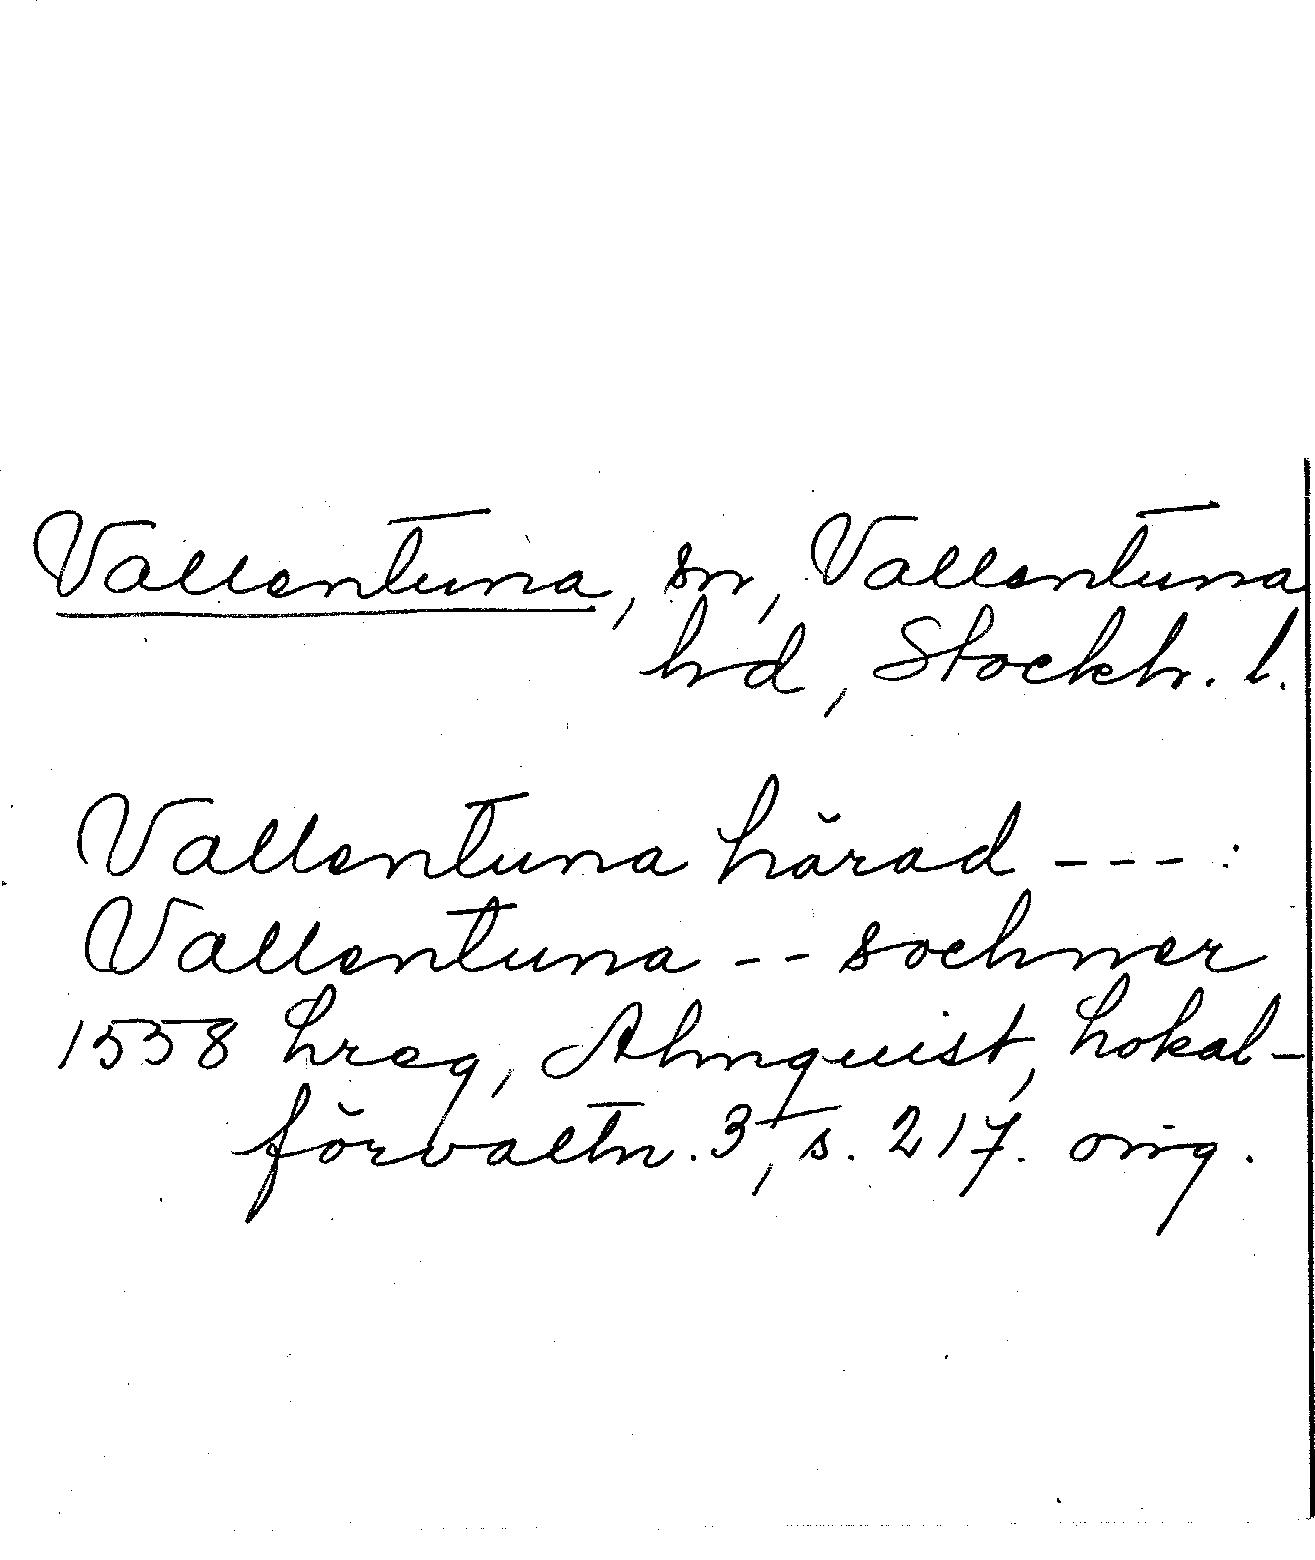 Vallentuna, sn, Vallentuna
hd, Stockh. l.
Vallentuna härad ---:
Vallentuna -- sochner
1558 hreg, Almquist, Lokal-
förvaltn. 3, s. 217. orig.